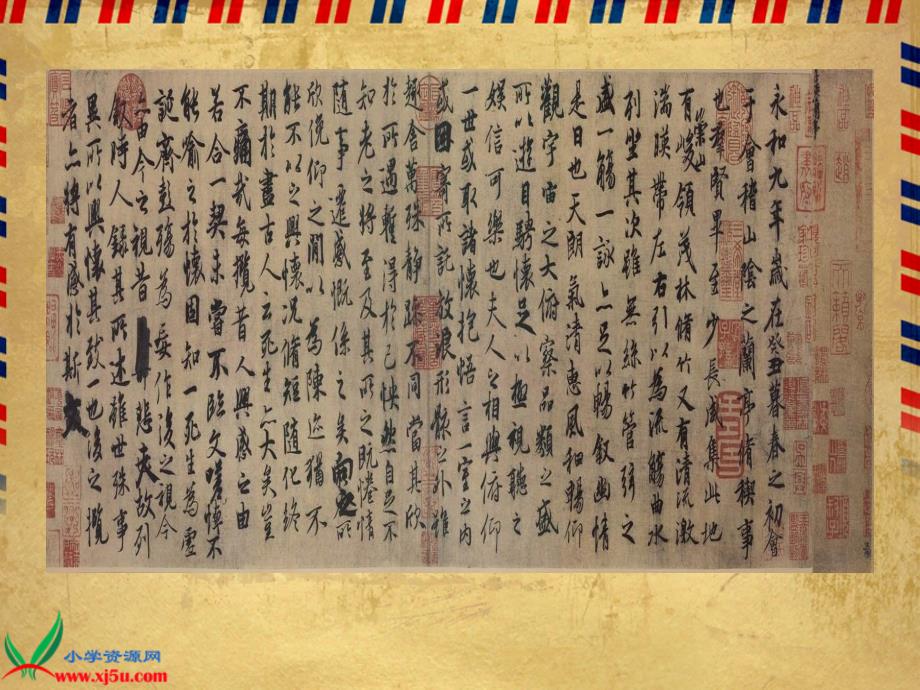 永和九年歲在癸丑暮春之初會
于會稽山陰之蘭亭脩稧事
也羣賢畢至少長咸集此地
有崇山峻領茂林脩竹又有清流激
湍暎帶左右引以為流觴曲水
列坐其次雖無絲竹管弦之
盛一觴一詠亦足以暢敘幽情
是日也天朗氣清惠風和暢仰
觀宇宙之大俯察品類之盛
所以遊目騁懷足以極視聽之
娛信可樂也夫人之相與俯仰
一世或取諸懷抱悟言一室之內
或因寄所託放浪形骸之外雖
趣舍萬殊靜躁不同當其欣
於所遇暫得於己怏然自足不
知老之將至及其所之既惓情
隨事遷感慨係之矣向之所
欣俛仰之閒以為陳迹猶不
能不以之興懷況脩短隨化終
期於盡古人云死生亦大矣豈
不痛哉每攬昔人興感之由
若合一契未嘗不臨文嗟悼不
能喻之於懷固知一死生為虛
誕齊彭殤為妄作後之視今
亦由今之視昔悲夫故列
敘時人錄其所述雖世殊事
異所以興懷其致一也後之攬
者亦將有感於斯文
小学资源网
www.xj5u.com